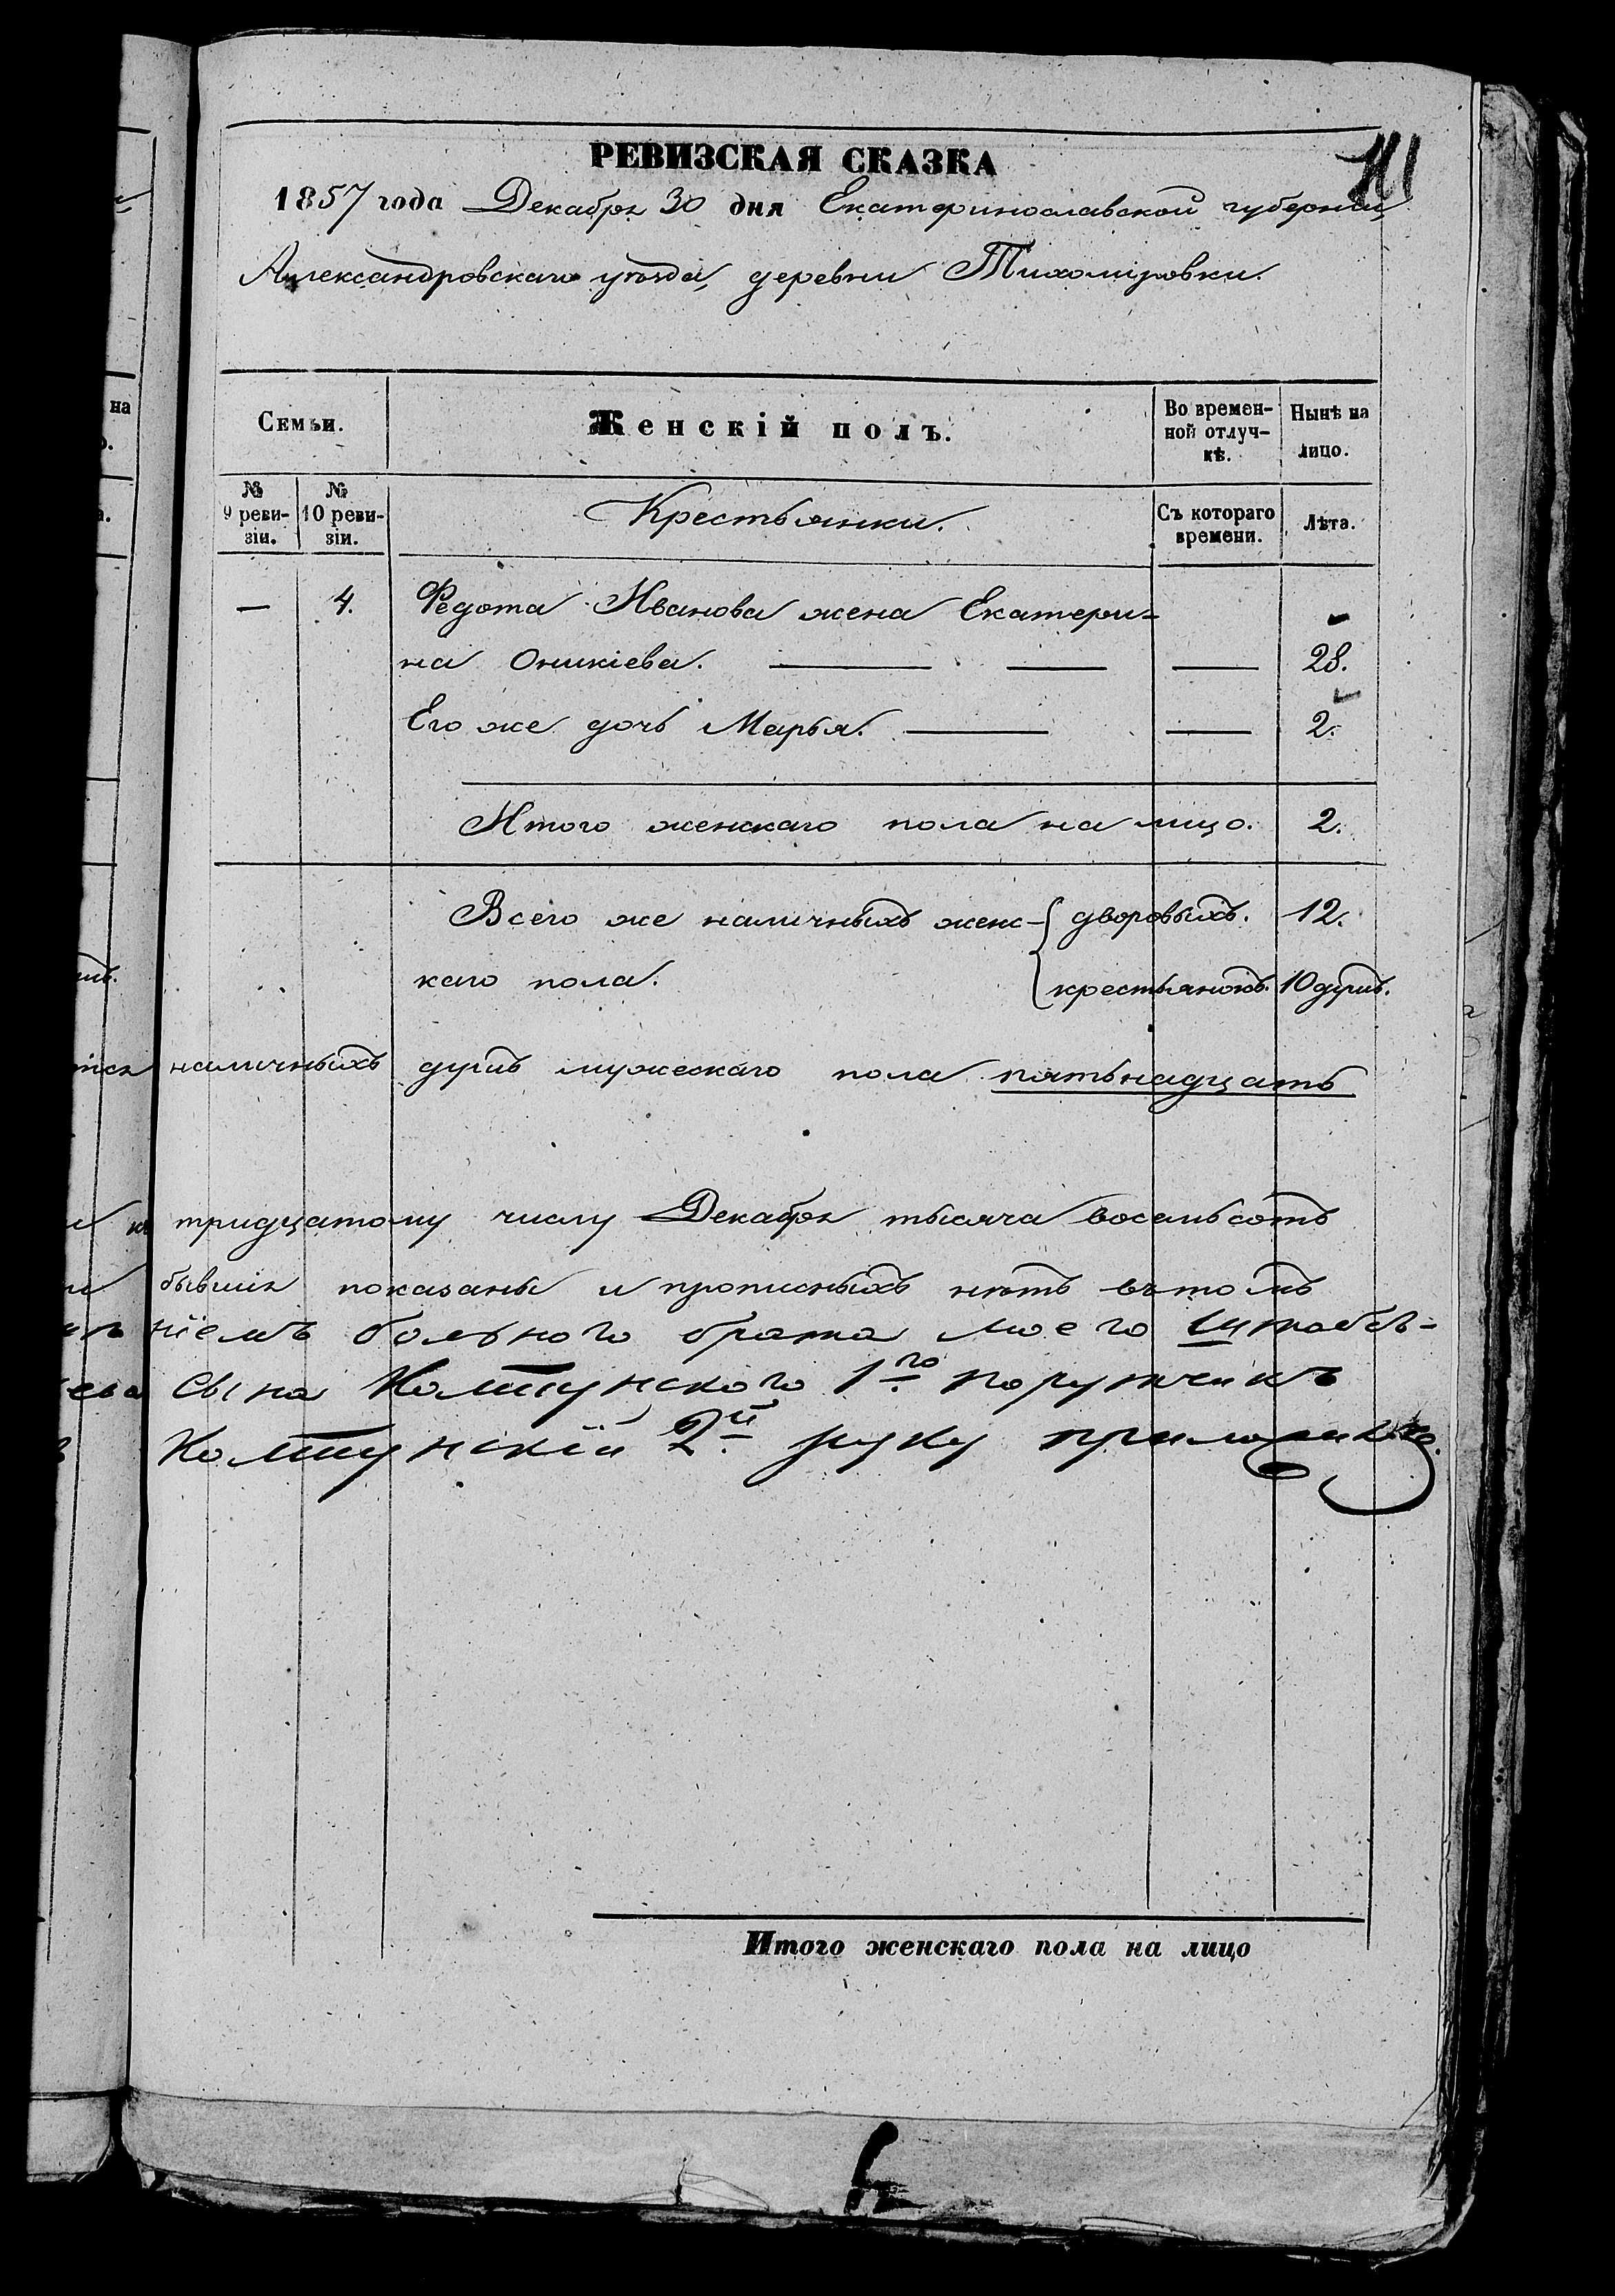 РЕВИЗСКАЯ СКАЗКА
1857 года Декабря 30 дня Екатеринославской губерніи
Александровскаго уѣзда, деревни Тихоміровки.
на
Семьи.
Женскій полъ.
Во времен-
ной отлуч-
кѣ.
Нынѣ на
лицо.
№
9 реви-
зіи.
№
10 реви-
зіи.
Крестьянки.
Съ котораго
времени.
Лѣта.
— 4. Федота Иванова жена Екатери-
на Оникіева. — — — 28.
Его же дочь Марья. — — 2.
Итого женскаго пола на лицо. 2.
Всего же наличныхъ женс- { дворовыхъ. 12.
каго пола. крестьянокъ. 10 душъ.
наличныхъ душъ мужескаго пола пятьнадцать
тридцатому числу Декабря тысяча восемьсотъ
бывшія показаны и прописныхъ нѣтъ въ томъ
ніемъ больного брата моего Штабсъ-
сына Колтунского 1го поручикъ
Колтунскій 2й руку приложилъ.
Итого женскаго пола на лицо